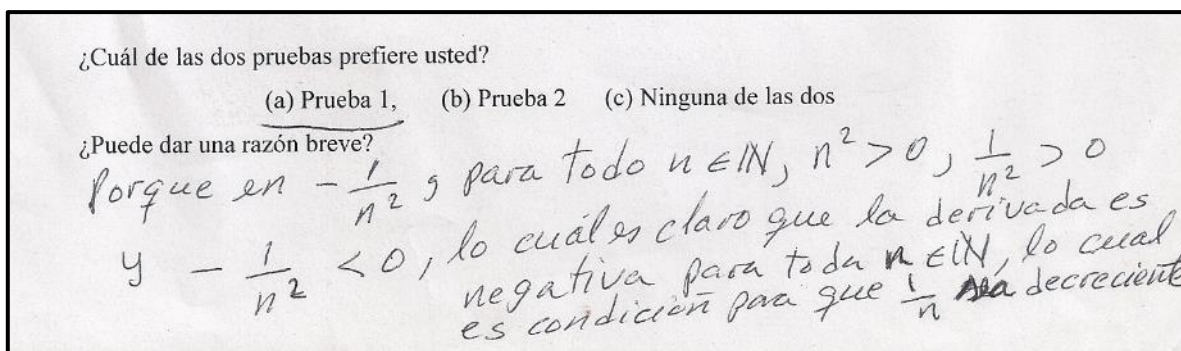 ¿Cuál de las dos pruebas prefiere usted?
(a) Prueba 1, (b) Prueba 2 (c) Ninguna de las dos
¿Puede dar una razón breve?
Porque en -1/n², para todo n ∈ ℕ, n² > 0, 1/n² > 0
y -1/n² < 0, lo cuál es claro que la derivada es
negativa para todu n ∈ ℕ, lo cual
es condición para que 1/n sea decreciente